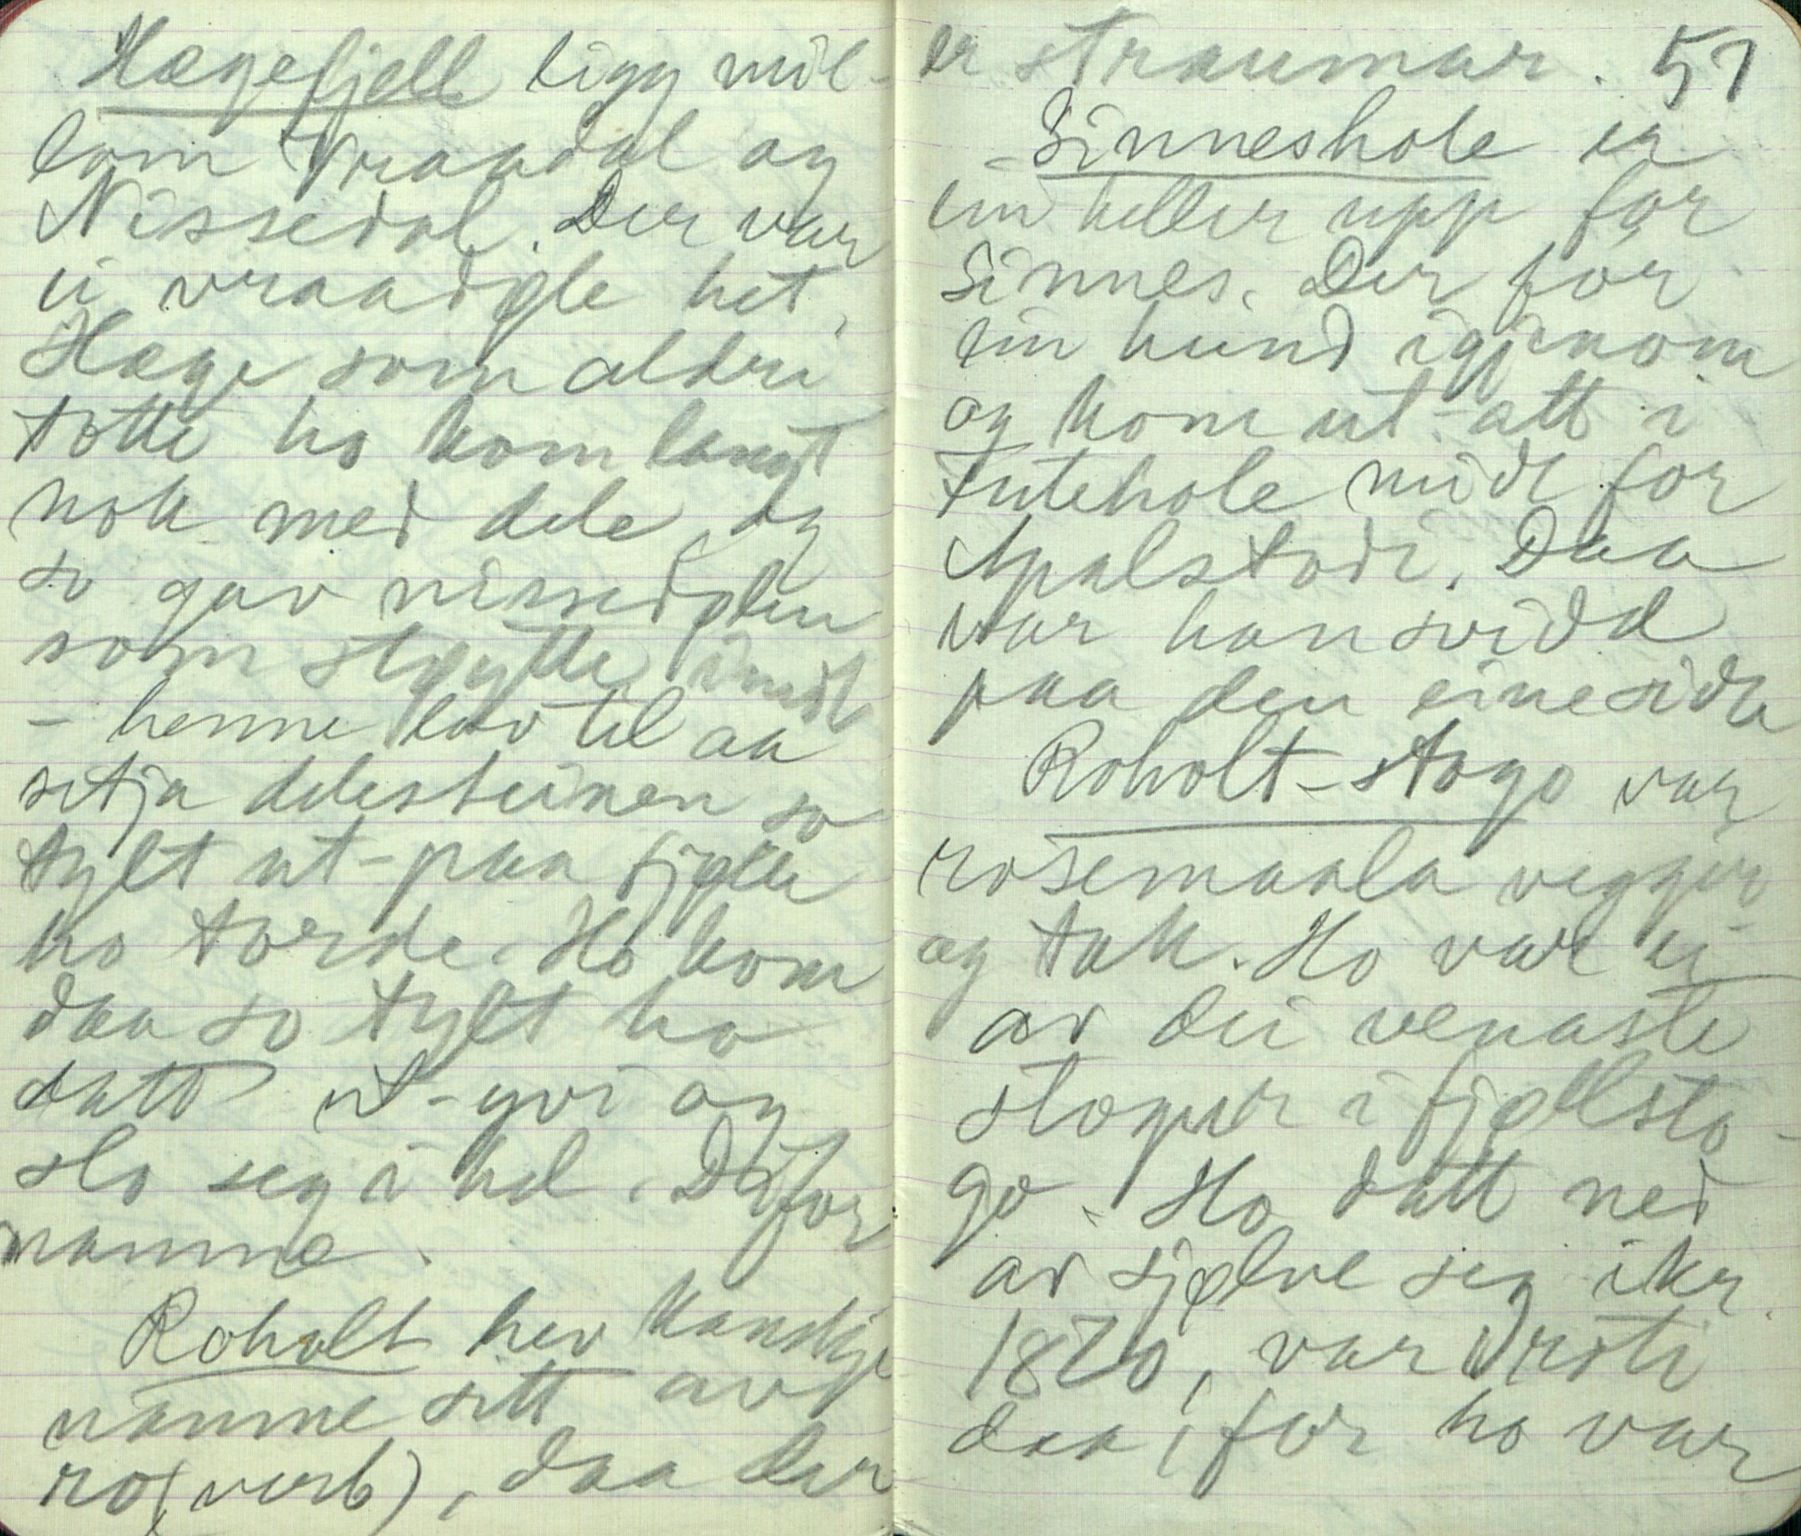 Hægefjell ligg mil-
lom Vraadal og
Nissedal. Der var
ei vraadøle het,
Hæge som aldri
totte ho kom langt
nok med dele, og
so gav nissedølen
som støytte imot
- henne lov til aa
setja delesteinen so
tylt ut-paa fjølle
ho torde. Ho kom
daa so tylt ho
datt ut-yvi og
slo seg i hel. Difor
namne.
Roholt hev kanskje
namne sitt av
ro (verb), daa der
er straumar. 57
Sinneshole er
ein heller upp for
Sinnes. Der for
ein hund igjenom
og kom ut-att i
Tutehole midt for
Apalstodi. Daa
var han svidd
paa den eine sida
Roholt-stogo var
rosemaala vegger
og tak. Ho var ei
av dei venaste
stogur i fjellsto-
go. Ho datt ned
av sjølve seg ikr.
1870, var roti
daa, for ho var